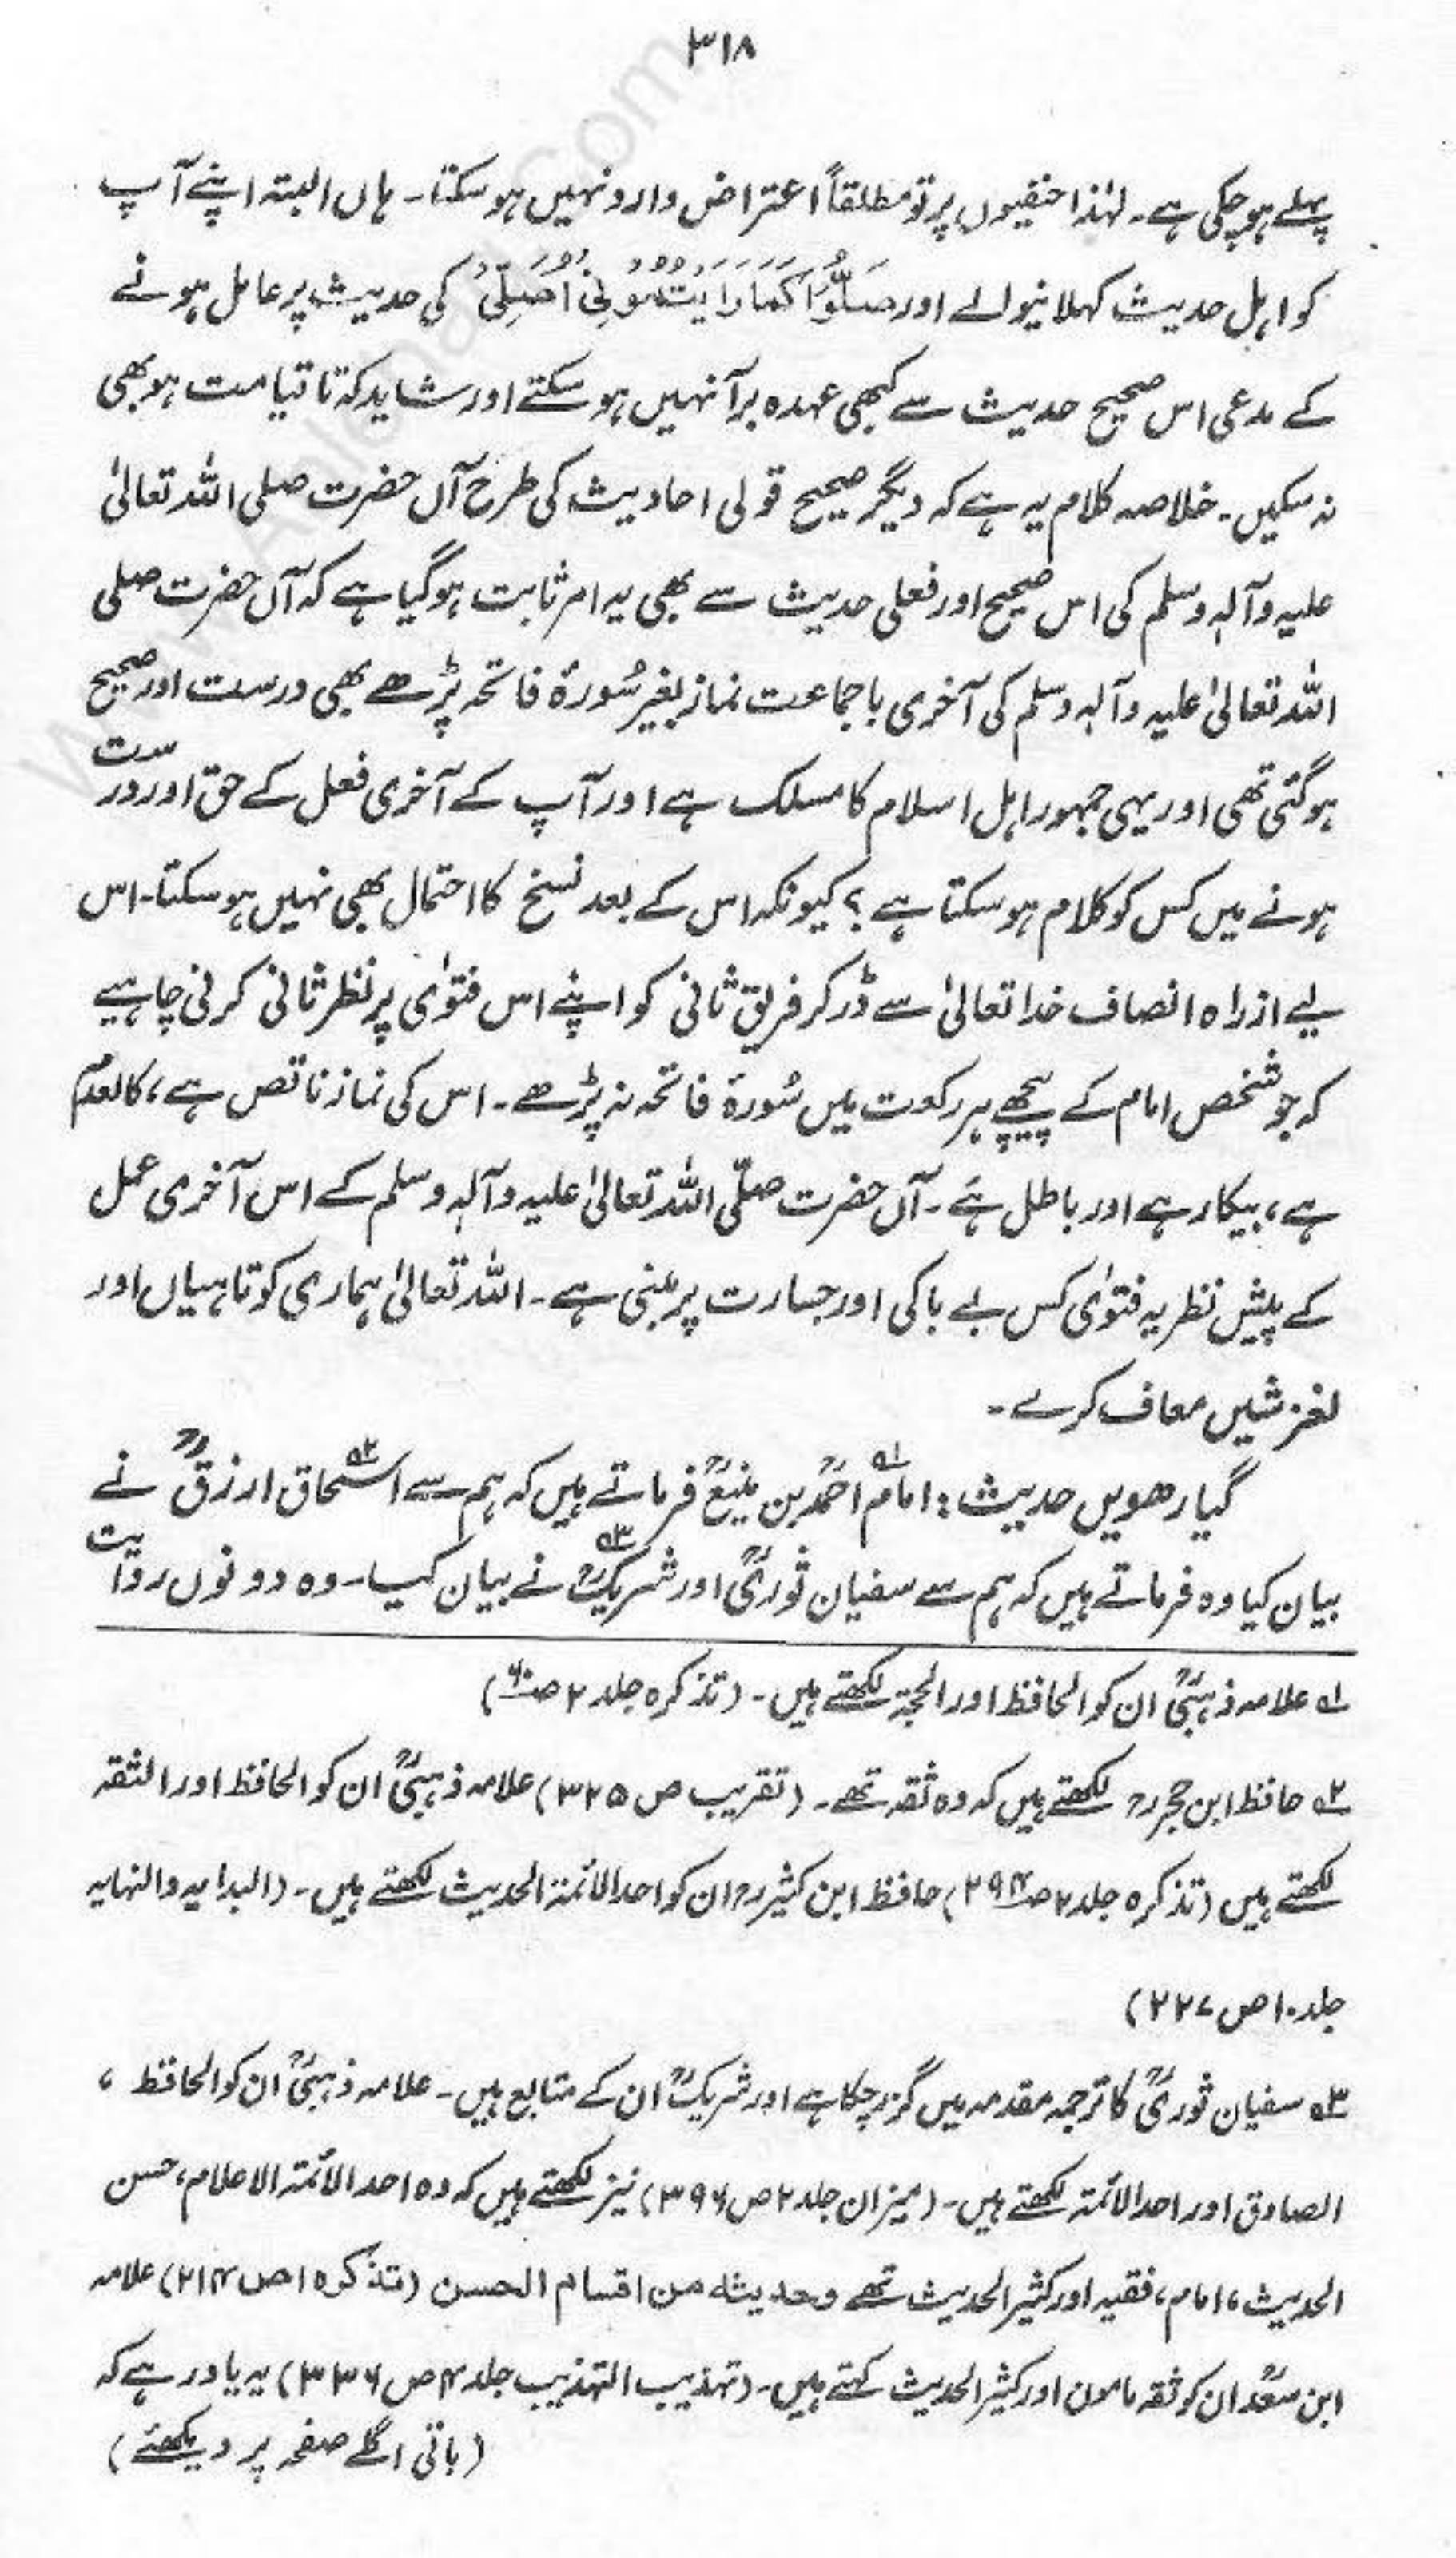 ۳۱۸
پہلے ہو چکی ہے۔ لہٰذا حنفیوں پر تو مطلقاً اعتراض وارد نہیں ہو سکتا۔ ہاں البتہ اپنے آپ
کو اہل حدیث کہلانیوالے اور صَلُّوْا كَمَا رَاَيْتُمُوْنِيْ اُصَلِّيْ کی حدیث پر عامل ہونے
کے مدعی اس صحیح حدیث سے کبھی عہدہ برآ نہیں ہو سکتے اور شاید کہ تا قیامت ہو بھی
نہ سکیں۔ خلاصہ کلام یہ ہے کہ دیگر صحیح قولی احادیث کی طرح آں حضرت صلی اللہ تعالیٰ
علیہ وآلہٖ وسلم کی اس صحیح اور فعلی حدیث سے بھی یہ امر ثابت ہو گیا ہے کہ آں حضرت صلی
اللہ تعالیٰ علیہ وآلہٖ وسلم کی آخری باجماعت نماز بغیر سُورۂ فاتحہ پڑھے بھی درست اور صحیح
ہو گئی تھی اور یہی جمہور اہل اسلام کا مسلک ہے اور آپ کے آخری فعل کے حق اور درست
ہونے میں کس کو کلام ہو سکتا ہے؟ کیونکہ اس کے بعد نسخ کا احتمال بھی نہیں ہو سکتا۔ اس
لیے ازراہ انصاف خدا تعالیٰ سے ڈر کر فریق ثانی کو اپنے اس فتوٰی پر نظر ثانی کرنی چاہیے
کہ جو شخص امام کے پیچھے ہر رکعت میں سُورۂ فاتحہ نہ پڑھے۔ اس کی نماز ناقص ہے، کالعدم
ہے، بیکار ہے اور باطل ہے۔ آں حضرت صلّی اللہ تعالیٰ علیہ وآلہٖ وسلم کے اس آخری عمل
کے پیش نظر یہ فتوٰی کس بے باکی اور جسارت پر مبنی ہے۔ اللہ تعالیٰ ہماری کوتاہیاں اور
لغزشیں معاف کرے۔
گیارھویں حدیث: امام۱؎ احمدؒ بن منیعؒ فرماتے ہیں کہ ہم سے اسحاق۲؎ ازرقؒ نے
بیان کیا وہ فرماتے ہیں کہ ہم سے سفیان ثوریؒ اور شریکؒ۳؎ نے بیان کیا۔ وہ دونوں روایت
۱؎ علامہ ذہبیؒ ان کو الحافظ اور الحجۃ لکھتے ہیں۔ (تذکرہ جلد ۲ ص)
۲؎ حافظ ابن حجرؒ لکھتے ہیں کہ وہ ثقہ تھے۔ (تقریب ص ۳۲۵) علامہ ذہبیؒ ان کو الحافظ اور الثقہ
لکھتے ہیں (تذکرہ جلد ۲ ص ۲۹۴) حافظ ابن کثیرؒ ان کو احد الائمۃ الحدیث لکھتے ہیں۔ (البدایہ والنہایہ
جلد ۱۰ ص ۲۲۷)
۳؎ سفیان ثوریؒ کا ترجمہ مقدمہ میں گزر چکا ہے اور شریکؒ ان کے متابع ہیں۔ علامہ ذہبیؒ ان کو الحافظ ،
الصادق اور احد الائمۃ لکھتے ہیں۔ (میزان جلد ۲ ص ۳۹۶) نیز لکھتے ہیں کہ وہ احد الائمۃ الاعلام، حسن
الحدیث، امام، فقیہ اور کثیر الحدیث تھے وحديثه من اقسام الحسن (تذکرہ ۱ ص ۲۱۴) علامہ
ابن سعدؒ ان کو ثقہ مامون اور کثیر الحدیث کہتے ہیں۔ (تہذیب التہذیب جلد ۴ ص ۳۳۶) یہ یاد رہے کہ
(باقی اگلے صفحہ پر دیکھئے)